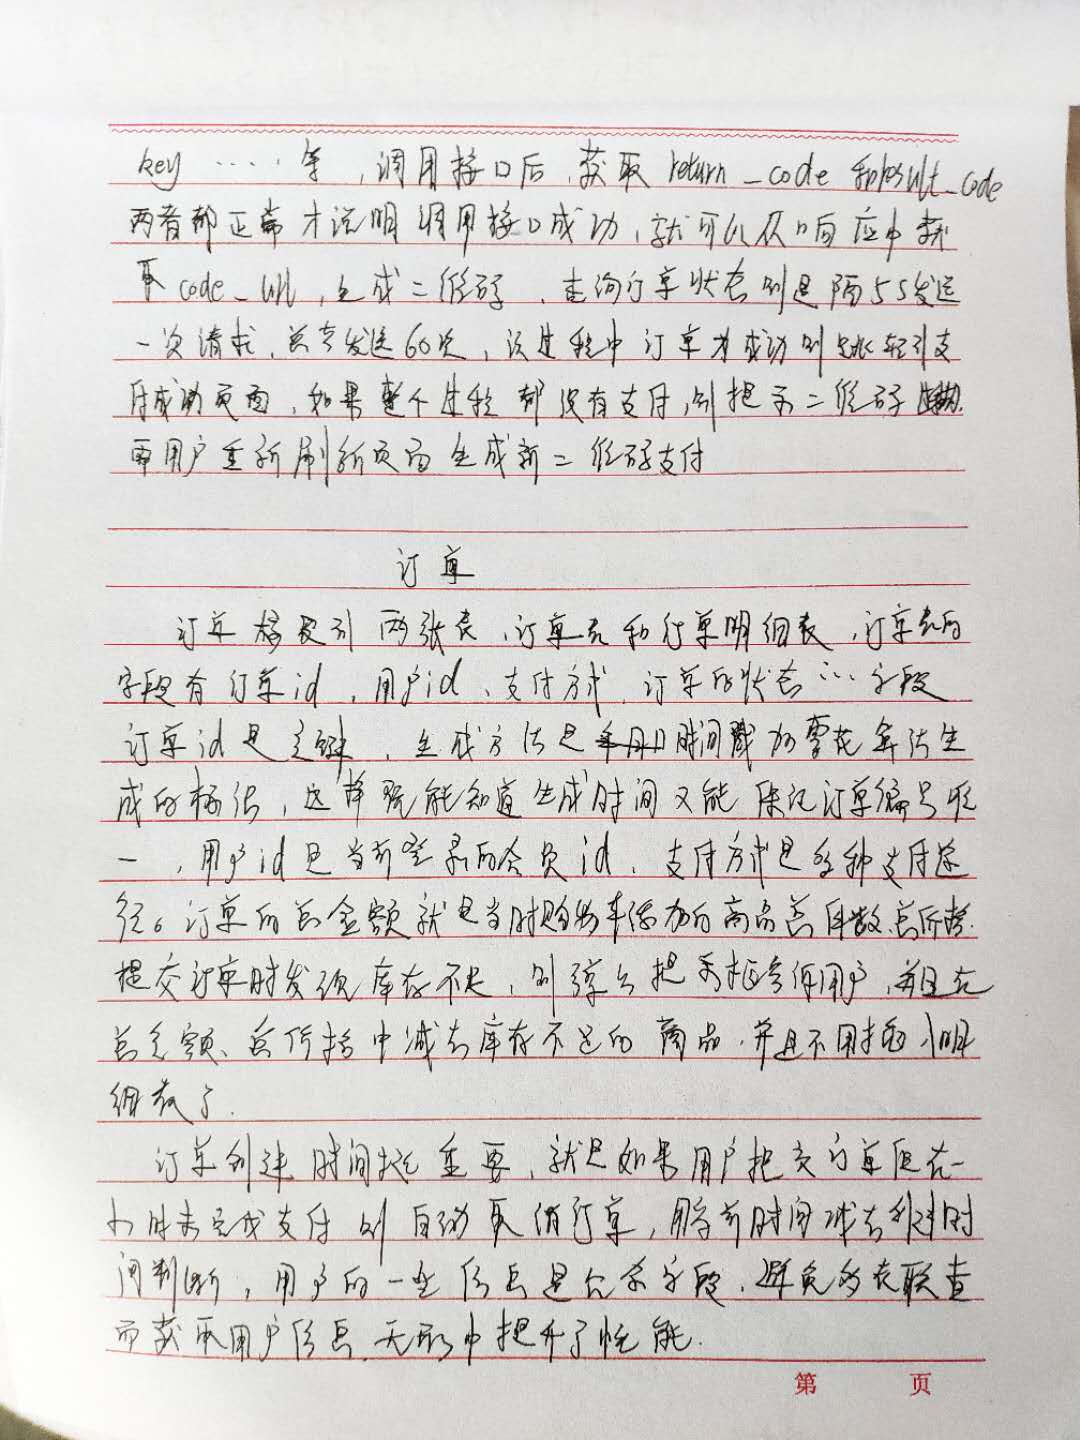 key ····· 等，调用接口后，获取 return_code 和result_code
两者都正常才说明调用接口成功，就可以从响应中获
取 code_url，生成二维码，查询订单状态则是隔5s发送
一次请求，总共发送60次，该过程中订单为成功则跳转到支
付成功页面，如果整个过程都没有支付，则提示二维码
用户重新刷新页面生成新二维码支付
订单
订单模块 两张表，订单表和订单明细表，订单表的
字段有订单id，用户id，支付方式，订单的状态···字段
订单id是主键，生成方法是时间戳加雪花算法生
成的，这样既能知道生成时间又能保证订单编号唯
一，用户id是当前登录的会员id，支付方式是各种支付途
径。订单的总金额就是当时购物车添加的商品总件数总价格.
提交订单时发现库存不足，则弹出提示框告诉用户，并且在
总金额、总价格中减去库存不足的商品，并且不用插入明
细表了.
订单创建时间挺重要，就是如果用户提交订单但在一
小时未完成支付则自动取消订单，用当前时间减去创建时
间判断，用户的一些信息是冗余字段，避免多表联查
而获取用户信息，无形中提升了性能.
第 页